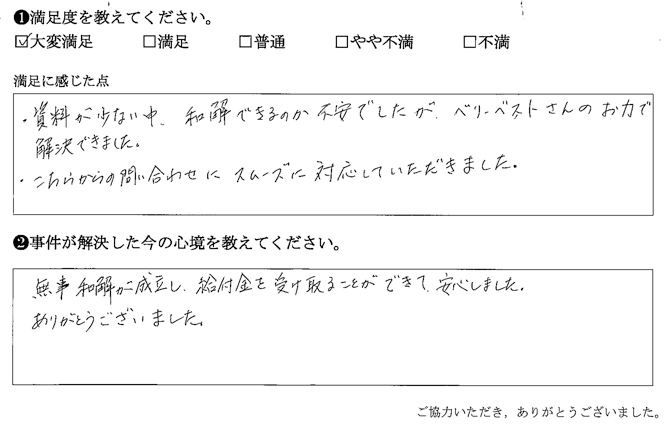 ❶満足度を教えてください。
☑大変満足 □満足 □普通 □やや不満 □不満
満足に感じた点
・資料が少ない中、和解できるのか不安でしたが、ベリーベストさんのお力で
解決できました。
・こちらからの問い合わせにスムーズに対応していただきました。
❷事件が解決した今の心境を教えてください。
無事和解が成立し、給付金を受け取ることができて、安心しました。
ありがとうございました。
ご協力いただき，ありがとうございました。